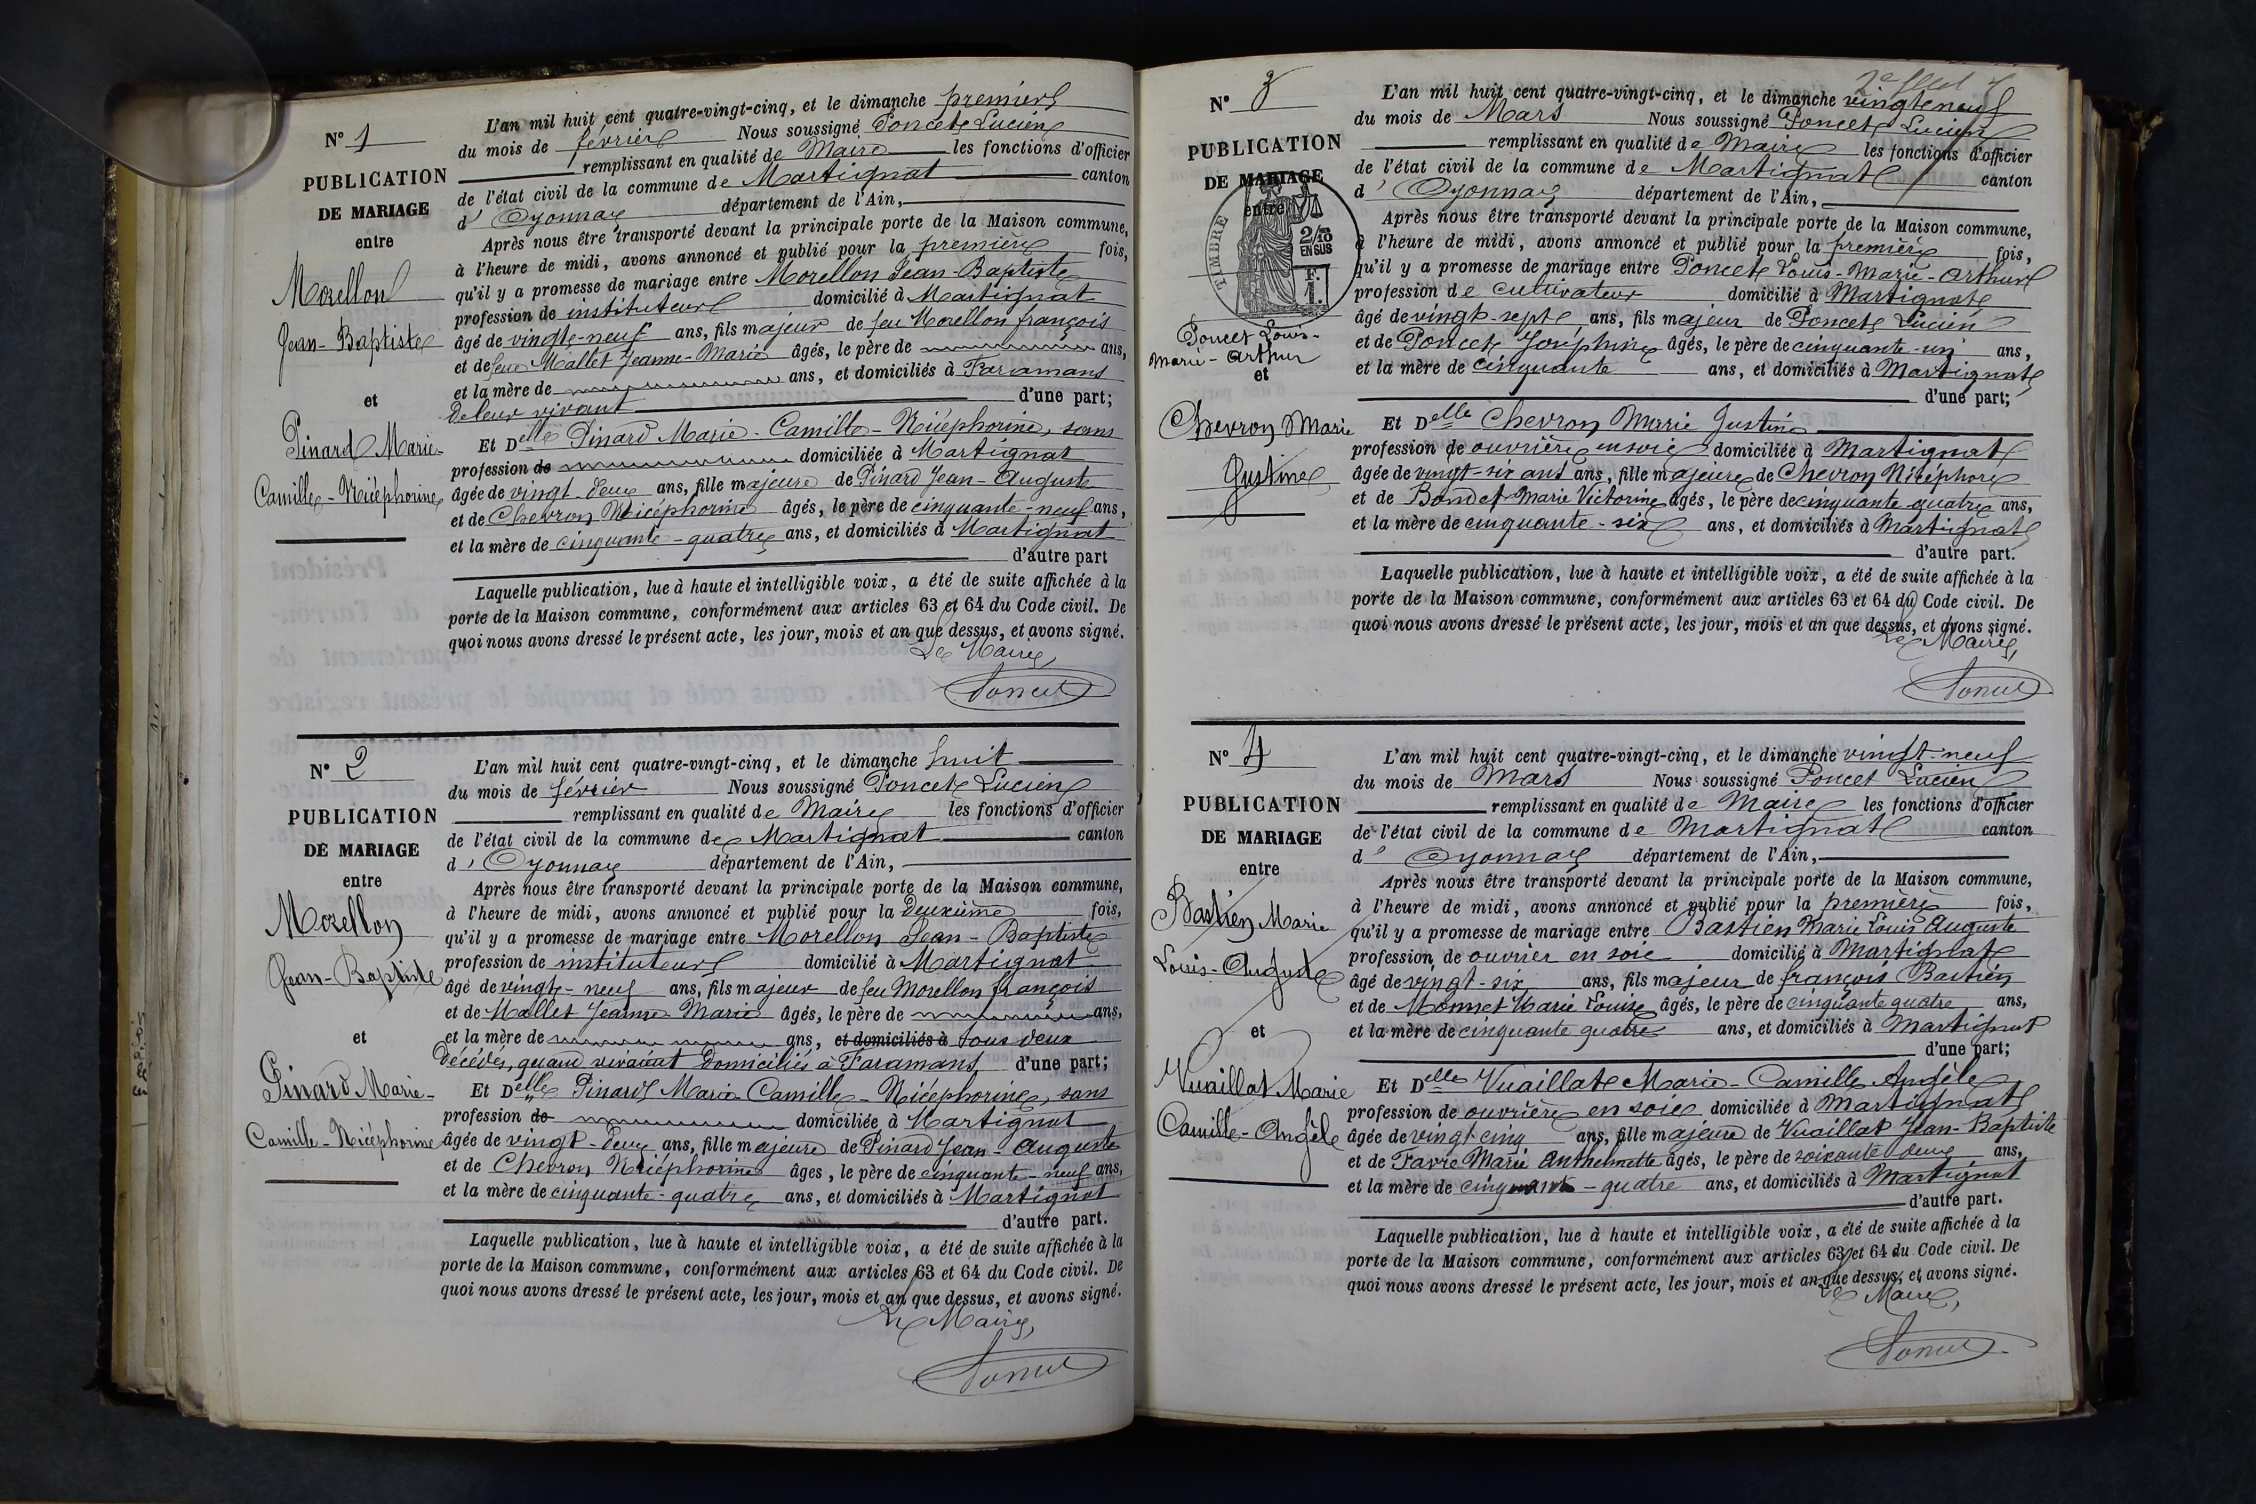 N° 1
PUBLICATION
DE MARIAGE
entre
Morellon
Jean-Baptiste
et
Pinard Marie-
Camille-Nicéphorine
L'an mil huit cent quatre-vingt-cinq, et le dimanche premier
du mois de février Nous soussigné Poncet Lucien
remplissant en qualité de Maire les fonctions d'officier
de l'état civil de la commune de Martignat canton
d' Oyonnax département de l'Ain,
Après nous être transporté devant la principale porte de la Maison commune,
à l'heure de midi, avons annoncé et publié pour la première fois,
qu'il y a promesse de mariage entre Morellon Jean-Baptiste
profession de instituteur domicilié à Martignat
âgé de vingt-neuf ans, fils majeur de feu Morellon françois
et de feue Mallet Jeanne-Marie âgés, le père de ans,
et la mère de ans, et domiciliés à Faramans
de leur vivant d'une part;
Et Delle Pinard Marie-Camille-Nicéphorine, sans
profession de domiciliée à Martignat
âgée de vingt-deux ans, fille majeure de Pinard Jean-Auguste
et de Chevron Nicéphorine âgés, le père de cinquante-neuf ans,
et la mère de cinquante-quatre ans, et domiciliés à Martignat
d'autre part
Laquelle publication, lue à haute et intelligible voix, a été de suite affichée à la
porte de la Maison commune, conformément aux articles 63 et 64 du Code civil. De
quoi nous avons dressé le présent acte, les jour, mois et an que dessus, et avons signé.
Le Maire,
Poncet
N° 2
PUBLICATION
DE MARIAGE
entre
Morellon
Jean-Baptiste
et
Pinard Marie-
Camille-Nicéphorine
L'an mil huit cent quatre-vingt-cinq, et le dimanche huit
du mois de février Nous soussigné Poncet Lucien
remplissant en qualité de Maire les fonctions d'officier
de l'état civil de la commune de Martignat canton
d' Oyonnax département de l'Ain,
Après nous être transporté devant la principale porte de la Maison commune,
à l'heure de midi, avons annoncé et publié pour la deuxième fois,
qu'il y a promesse de mariage entre Morellon Jean-Baptiste
profession de instituteur domicilié à Martignat
âgé de vingt-neuf ans, fils majeur de feu Morellon françois
et de Mallet Jeanne Marie âgés, le père de ans,
et la mère de ans, et domiciliés à tous deux
décédés, quand vivaient domiciliés à Faramans d'une part;
Et Delle Pinard Marie Camille-Nicéphorine, sans
profession de domiciliée à Martignat
âgée de vingt-deux ans, fille majeure de Pinard Jean-Auguste
et de Chevron Nicéphorine âges, le père de cinquante-neuf ans,
et la mère de cinquante-quatre ans, et domiciliés à Martignat
d'autre part.
Laquelle publication, lue à haute et intelligible voix, a été de suite affichée à la
porte de la Maison commune, conformément aux articles 63 et 64 du Code civil. De
quoi nous avons dressé le présent acte, les jour, mois et an que dessus, et avons signé.
Le Maire,
Poncet
N° 3
PUBLICATION
DE MARIAGE
entre
TIMBRE
2/10
EN SUS
F.
1.
Poncet Louis-
Marie-Arthur
et
Chevron Marie
Justine
L'an mil huit cent quatre-vingt-cinq, et le dimanche vingt neuf
du mois de Mars Nous soussigné Poncet Lucien
remplissant en qualité de Maire les fonctions d'officier
de l'état civil de la commune de Martignat canton
d' Oyonnax département de l'Ain,
Après nous être transporté devant la principale porte de la Maison commune,
à l'heure de midi, avons annoncé et publié pour la première fois,
qu'il y a promesse de mariage entre Poncet Louis-Marie-Arthur
profession de cultivateur domicilié à Martignat
âgé de vingt-sept ans, fils majeur de Poncet Lucien
et de Poncet Joséphine âgés, le père de cinquante-un ans,
et la mère de cinquante ans, et domiciliés à Martignat
d'une part;
Et Delle Chevron Marie Justine
profession de ouvrière en soie domiciliée à Martignat
âgée de vingt-six ans ans, fille majeure de Chevron Nicéphore
et de Bondet Marie Victorine âgés, le père de cinquante quatre ans,
et la mère de cinquante-six ans, et domiciliés à Martignat
d'autre part.
Laquelle publication, lue à haute et intelligible voix, a été de suite affichée à la
porte de la Maison commune, conformément aux articles 63 et 64 du Code civil. De
quoi nous avons dressé le présent acte, les jour, mois et an que dessus, et avons signé.
Le Maire,
Poncet
N° 4
PUBLICATION
DE MARIAGE
entre
Bastien Marie
Louis-Auguste
et
Vuaillat Marie
Camille-Angèle
L'an mil huit cent quatre-vingt-cinq, et le dimanche vingt-neuf
du mois de Mars Nous soussigné Poncet Lucien
remplissant en qualité de Maire les fonctions d'officier
de l'état civil de la commune de Martignat canton
d' Oyonnax département de l'Ain,
Après nous être transporté devant la principale porte de la Maison commune,
à l'heure de midi, avons annoncé et publié pour la première fois,
qu'il y a promesse de mariage entre Bastien Marie Louis Auguste
profession de ouvrier en soie domicilié à Martignat
âgé de vingt-six ans, fils majeur de françois Bastien
et de Monnet Marie Louise âgés, le père de cinquante quatre ans,
et la mère de cinquante quatre ans, et domiciliés à Martignat
d'une part;
Et Delle Vuaillat Marie-Camille Angèle
profession de ouvrière en soie domiciliée à Martignat
âgée de vingt-cinq ans, fille majeure de Vuaillat Jean-Baptiste
et de Favre Marie Anthelmette âgés, le père de soixante deux ans,
et la mère de cinquante-quatre ans, et domiciliés à Martignat
d'autre part.
Laquelle publication, lue à haute et intelligible voix, a été de suite affichée à la
porte de la Maison commune, conformément aux articles 63 et 64 du Code civil. De
quoi nous avons dressé le présent acte, les jour, mois et an que dessus, et avons signé.
Le Maire,
Poncet